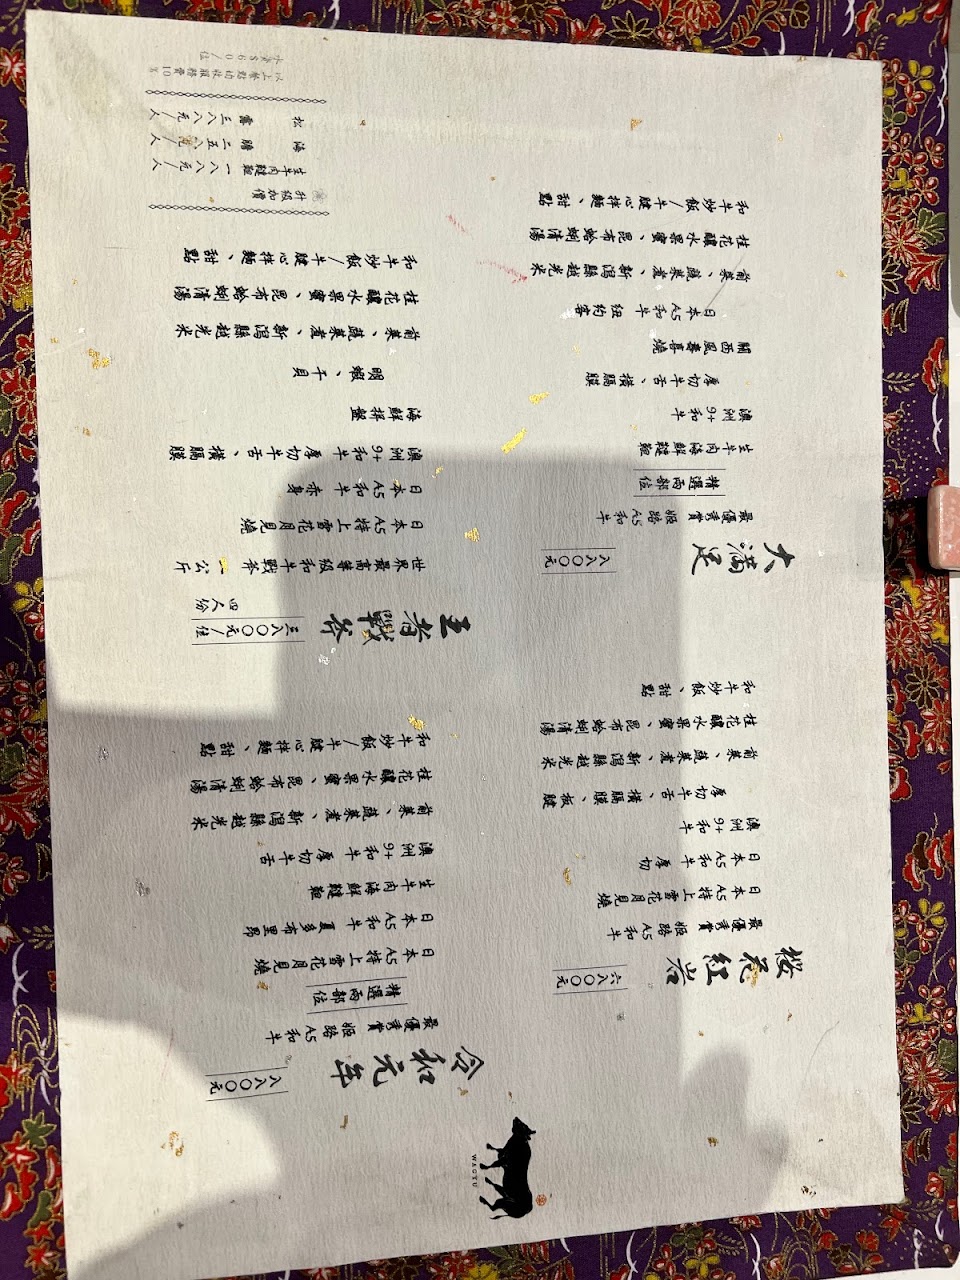 WAGYU
桜花紅岩
六八〇〇元
最優秀賞姬路A5和牛
日本A5特上雪花月見燒
日本A5和牛厚切
澳洲9+和牛
厚切牛舌、橫膈膜、板腱
前菜、蔬菜煮、新瀉縣越光米
桂花釀水果蜜、昆布蛤蜊清湯
和牛炒飯、甜點
大滿足
八八〇〇元
最優秀賞姬路A5和牛
精選兩部位
生牛肉海鮮韃靼
澳洲9+和牛
厚切牛舌、橫膈膜
關西風壽喜燒
日本A5和牛紐約客
前菜、蔬菜煮、新瀉縣越光米
桂花釀水果蜜、昆布蛤蜊清湯
和牛炒飯/牛腱心拌麵、甜點
令和元年
八八〇〇元
最優秀賞姬路A5和牛
精選兩部位
日本A5特上雪花月見燒
日本A5和牛夏多布里昂
生牛肉海鮮韃靼
澳洲9+和牛厚切牛舌
前菜、蔬菜煮、新瀉縣越光米
桂花釀水果蜜、昆布蛤蜊清湯
和牛炒飯/牛腱心拌麵、甜點
王者戰斧
三八〇〇元/位
四人份
世界最高等級和牛戰斧 公斤
日本A5特上雪花月見燒
日本A5和牛赤身
澳洲9+和牛厚切牛舌、橫膈膜
海鮮拼盤
明蝦、干貝
前菜、蔬菜煮、新瀉縣越光米
桂花釀水果蜜、昆布蛤蜊清湯
和牛炒飯/牛腱心拌麵、甜點
升級加價
生牛肉韃靼 一八八元/人
海膽 二五八元/人
松露 三八八元/人
以上餐點均收服務費10%
水資$60/位